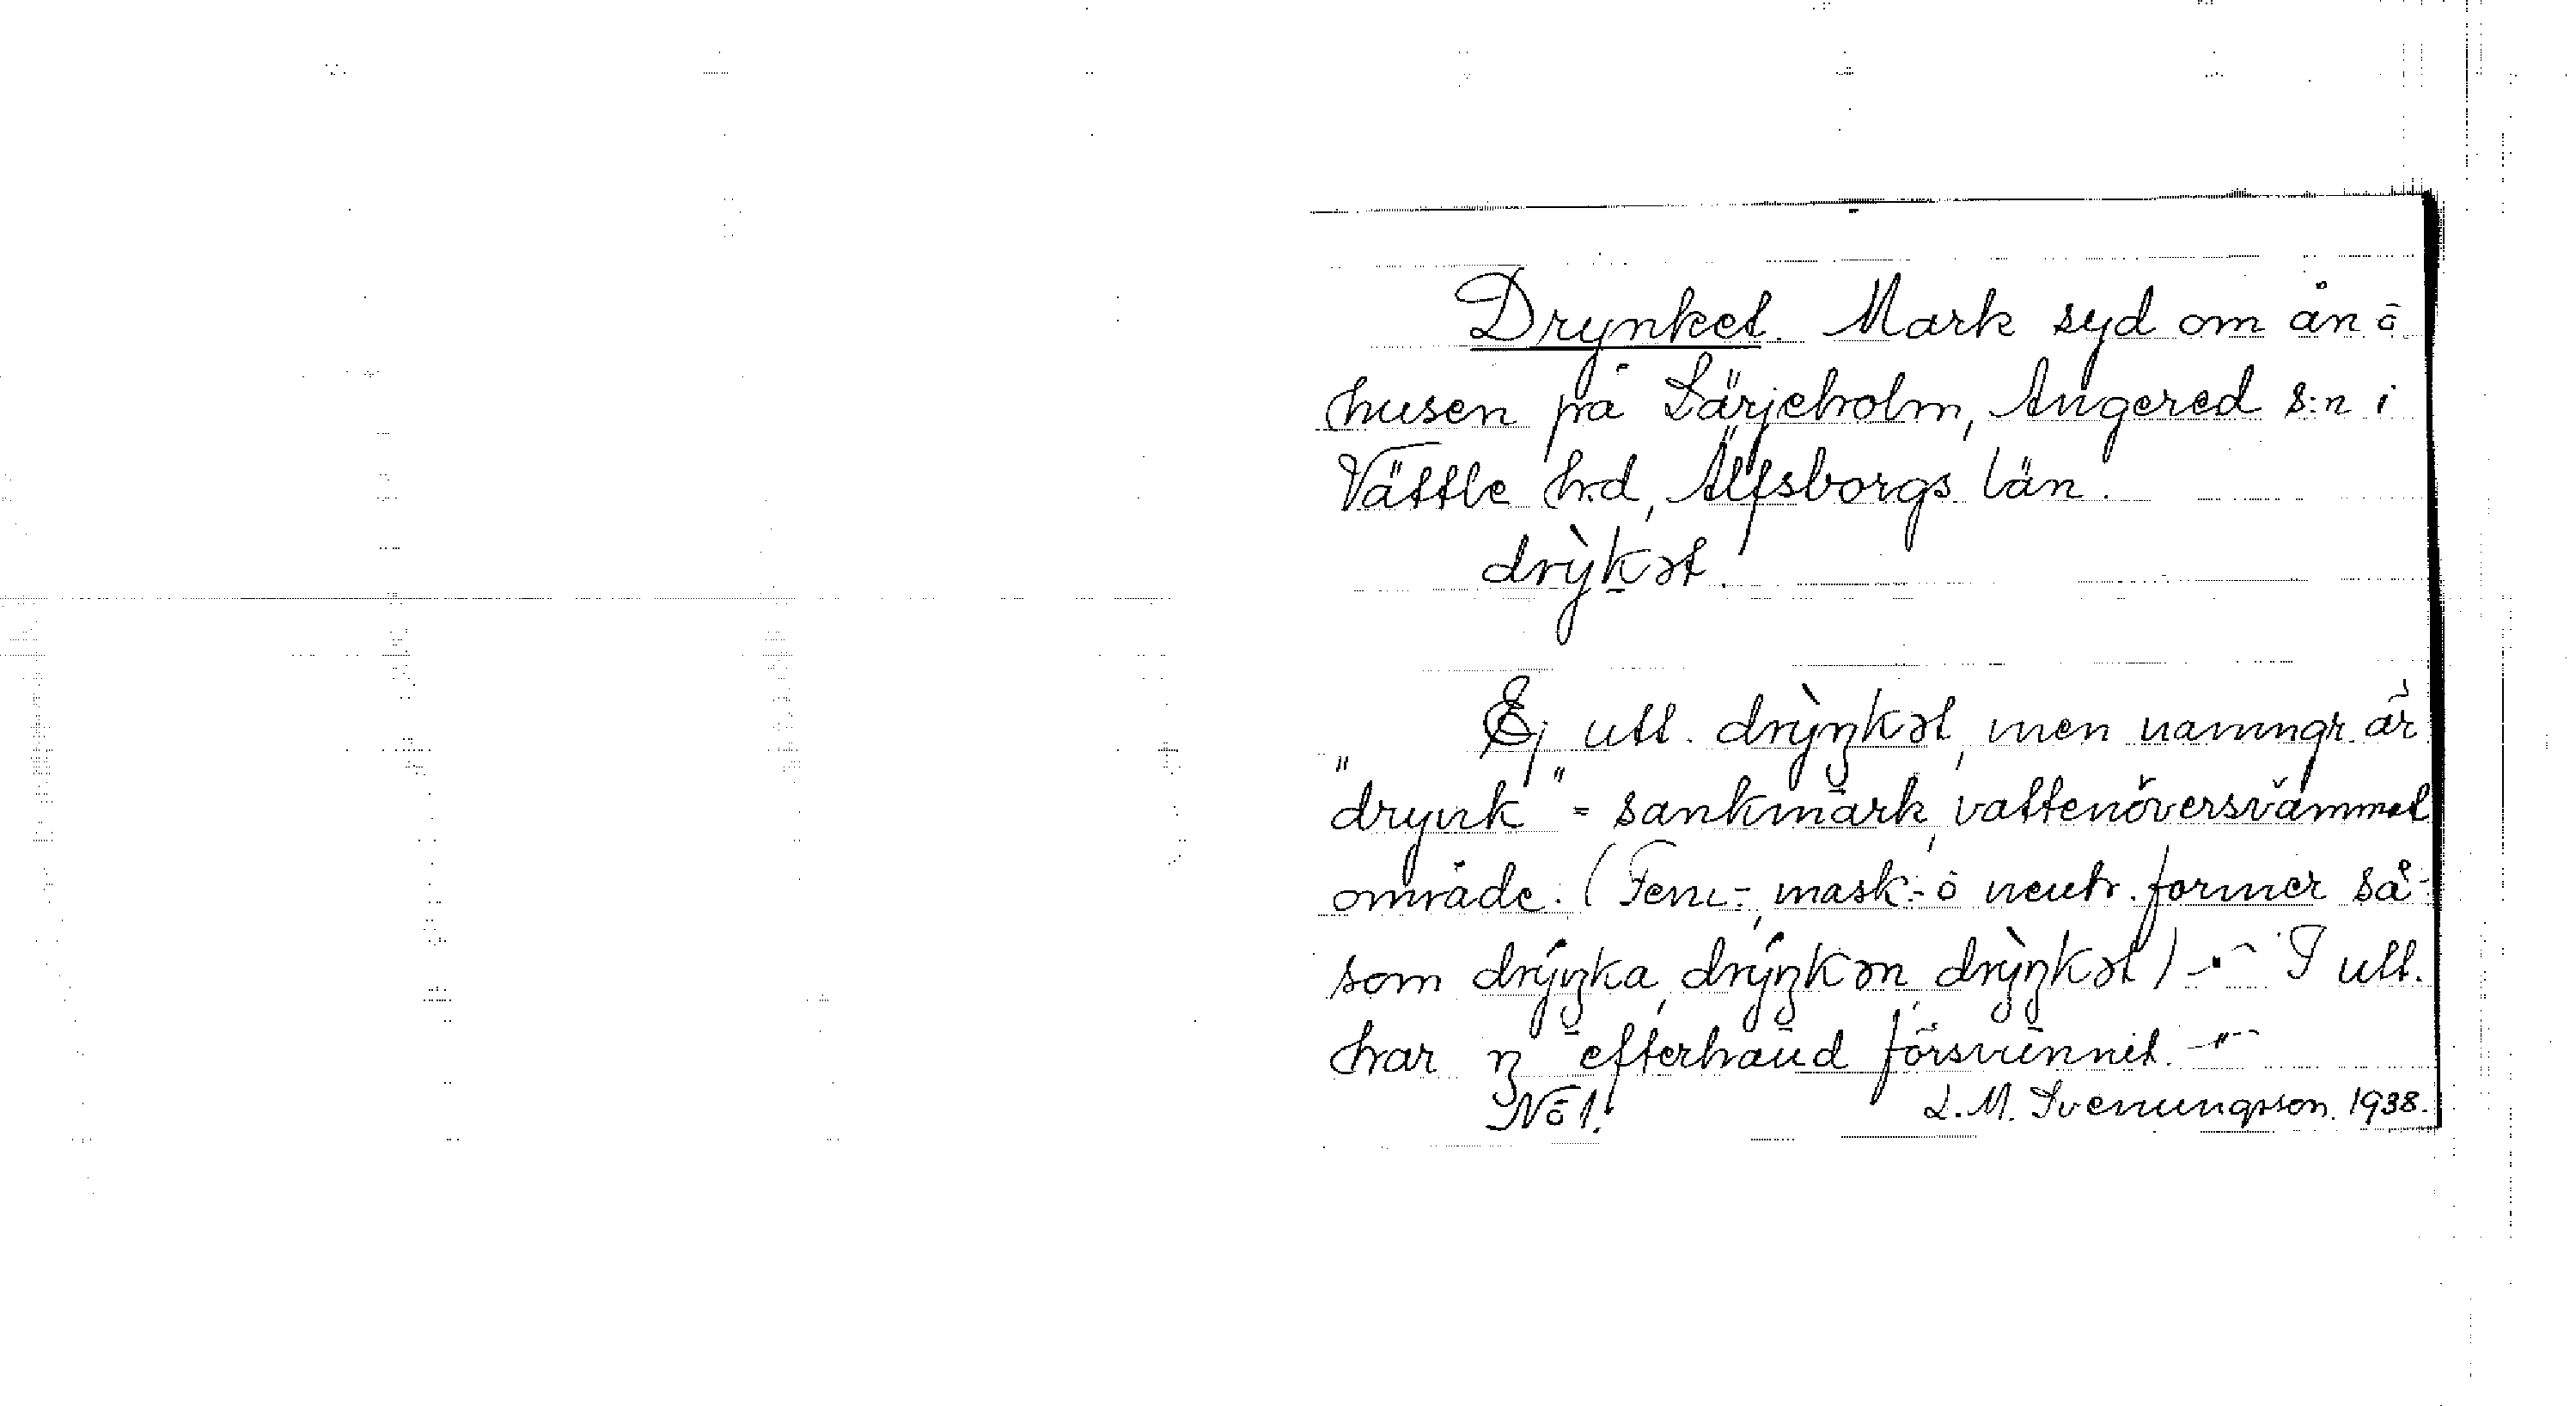 Drynket. Mark syd om ån o
husen på Lärjeholm, Angered s:n i
Vättle h:d, Älfsborgs län.
drỳk̠ət.
Ej utt. drỳŋk̠ət, men namngr. är
"drynk" = sankmark, vattenöversvämmat
område. (Fem-, mask- o neutr. former så-
som drýŋka, drýŋkən, drỳŋkət) -"- I utt.
har ŋ efterhand försvunnit. -"-
No 1. L. M. Svenungsson. 1938.